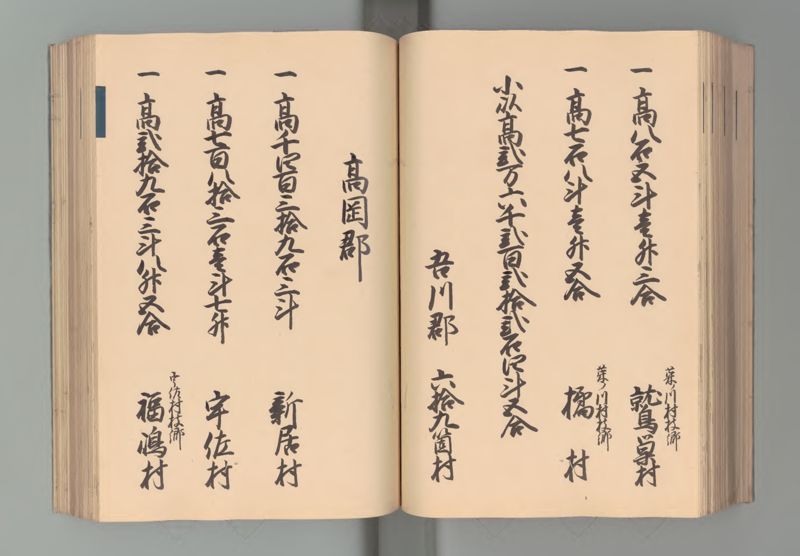 一 高八石五斗壱升三合 菜ノ川村枝郷 鷲巣村
一 高七石八斗壱升五合 菜ノ川村枝郷 橘村
小以高弐万六千弐百弐拾弐石四斗五合
吾川郡 六拾九箇村
高岡郡
一 高千四百三拾九石三斗 新居村
一 高七百八拾三石壱斗七升 宇佐村
一 高弐拾九石三斗八升五合 宇佐村枝郷 福嶋村